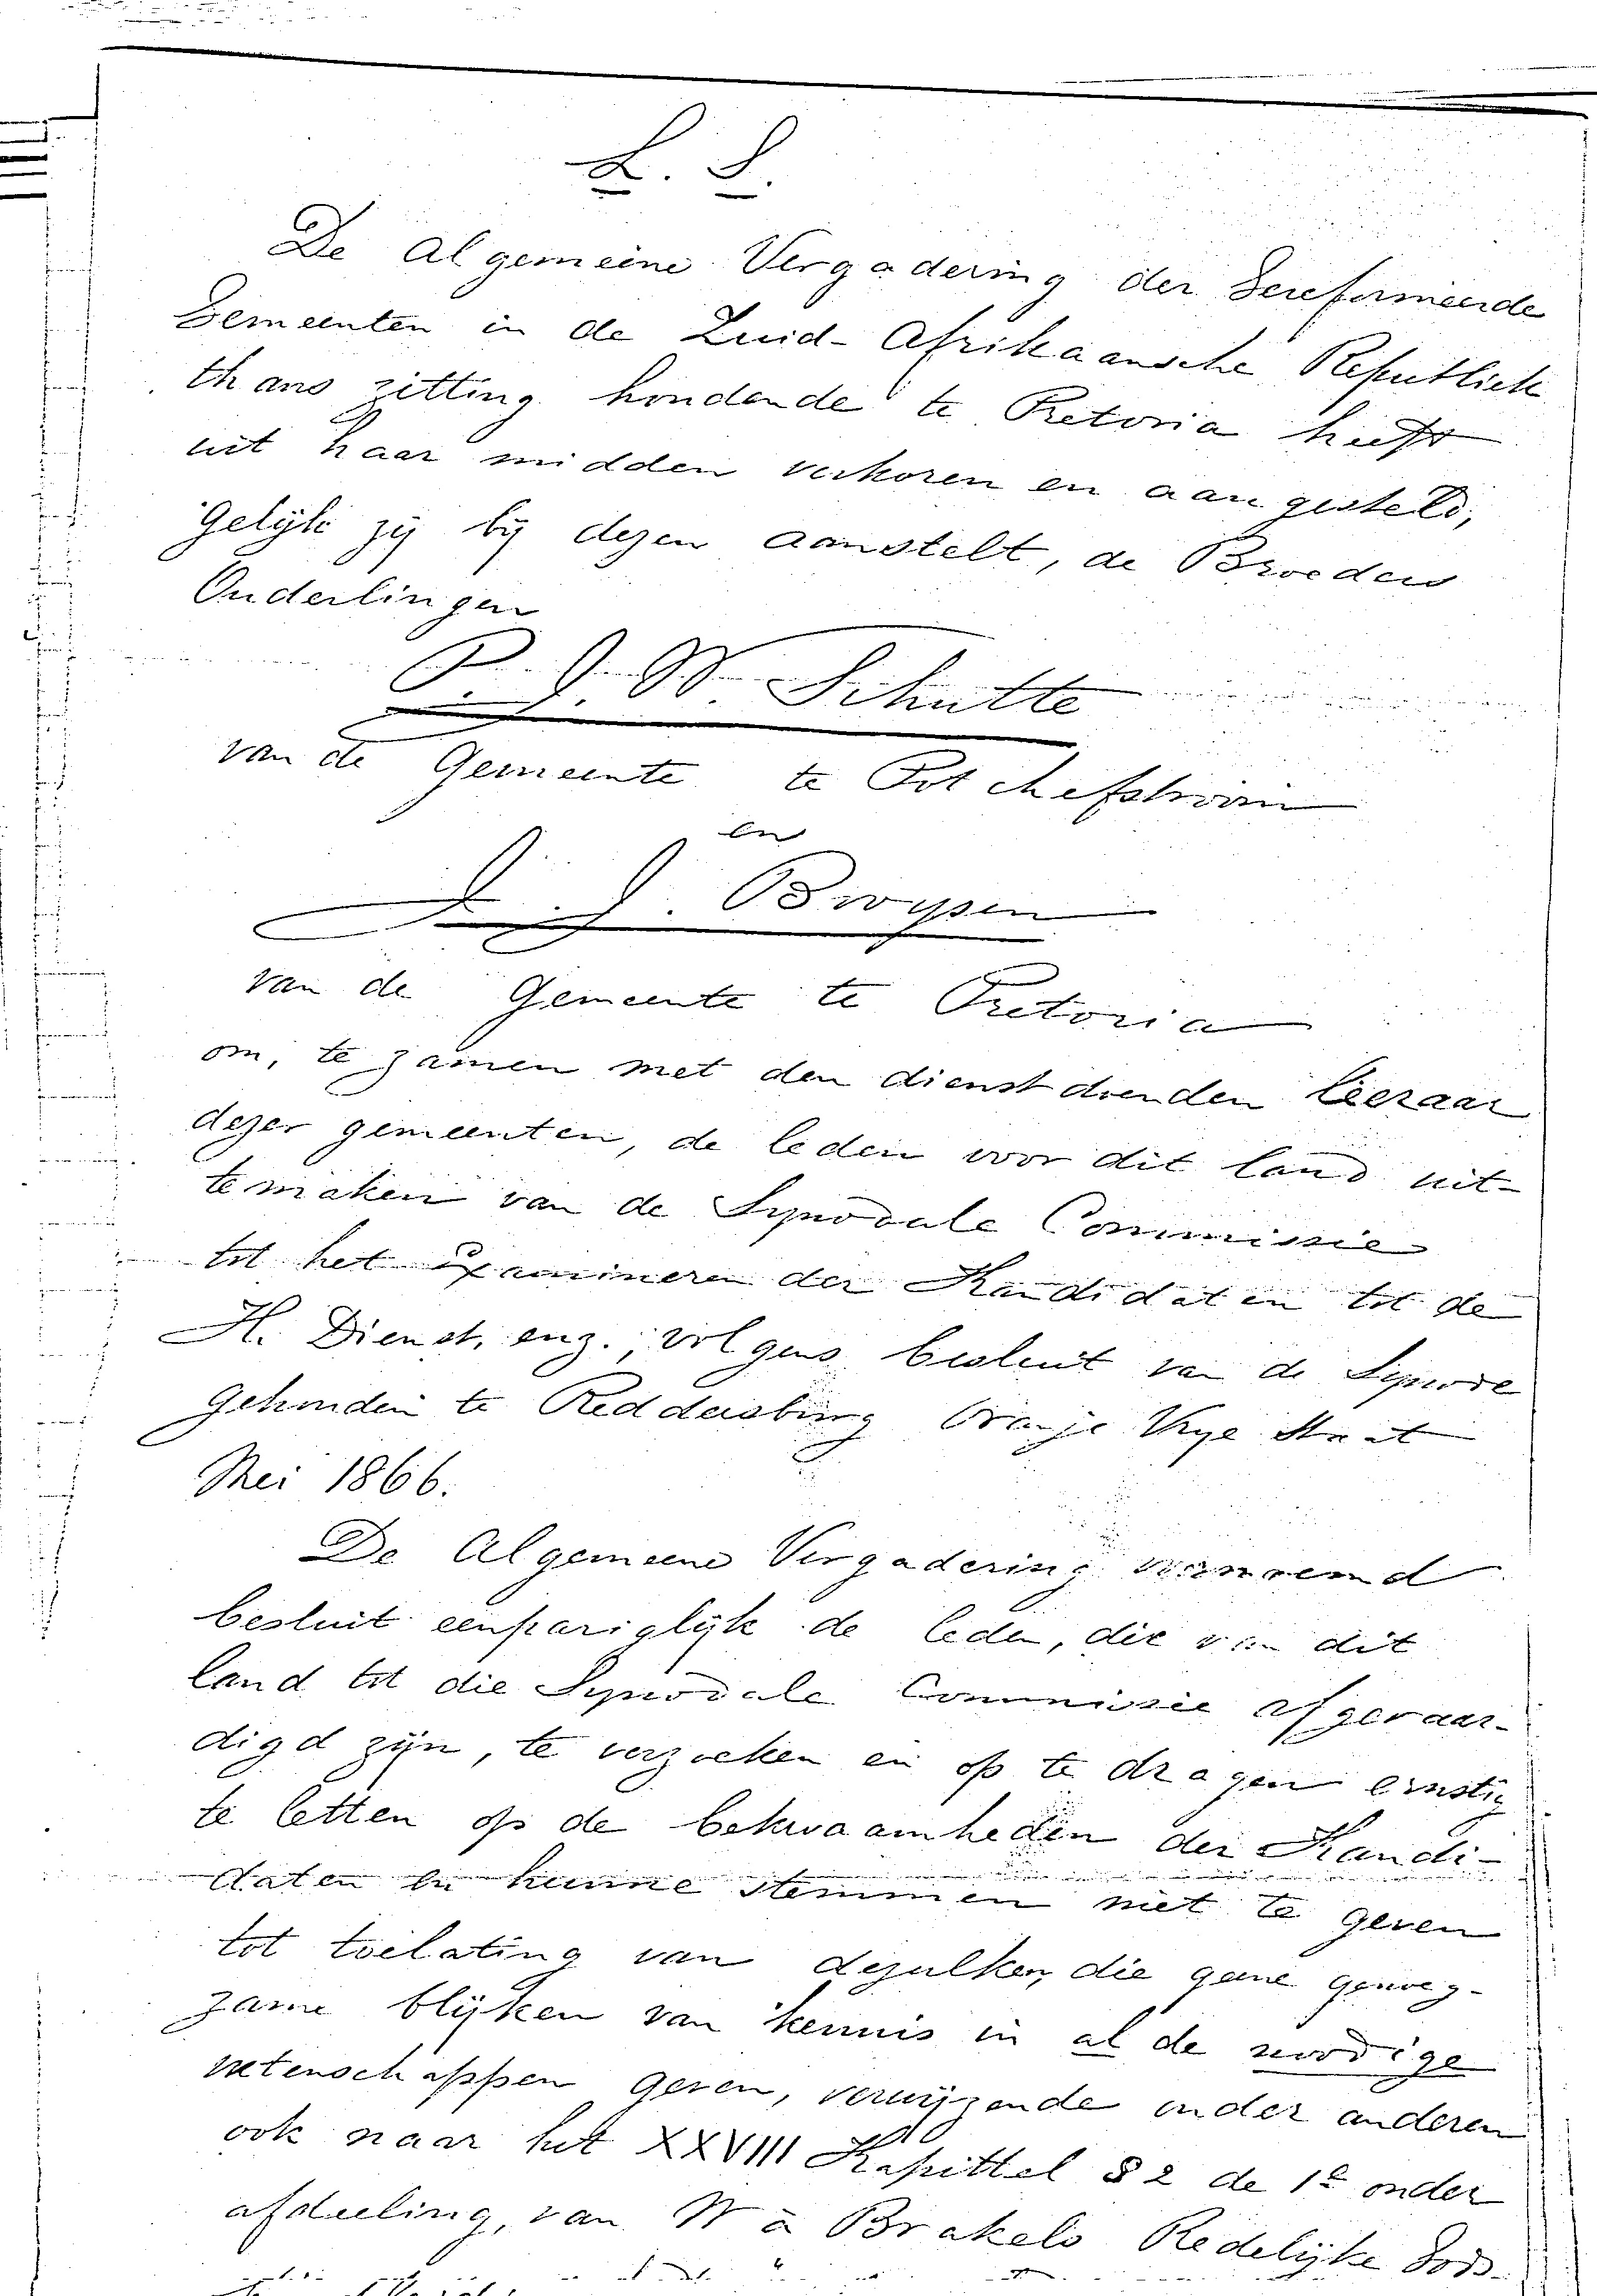 L. S.
De Algemeene Vergadering der Gereformeerde
Gemeenten in de Zuid-Afrikaansche Republiek
thans zitting houdende te Pretoria heeft
uit haar midden verkoren en aangesteld,
Gelijk zij bij dezen aanstelt, de Broeders
Ouderlingen
P. J. W. Schutte
van de Gemeente te Potchefstroom
en
J. J.
van de Gemeente te Pretoria
om, te zamen met den dienstdoenden leeraar
dezer gemeenten, de leden voor dit land uit-
temaken van de Synodale Commissie
tot het Examineren der Kandidaten tot de
H. Dienst, enz., volgens besluit van de Synode
Gehouden te Reddersburg Oranje Vrye Staat
Mei 1866.
De Algemeene Vergadering voornoemd
besluit eenpariglijk de leden, die van dit
land tot die Synodale Commissie afgevaar-
digd zijn, te verzoeken en op te dragen ernstig
te letten op de bekwaamheden der Kandi-
daten en hunne stemmen niet te geven
tot toelating van dezulken, die geene genoeg-
zame blijken van kennis in al de noodige
wetenschappen geven, verwijzende onder anderen
ook naar het XXVIII Kapittel § 2 de 1e onder
afdeeling, van W à Brakels Redelijke Gods-